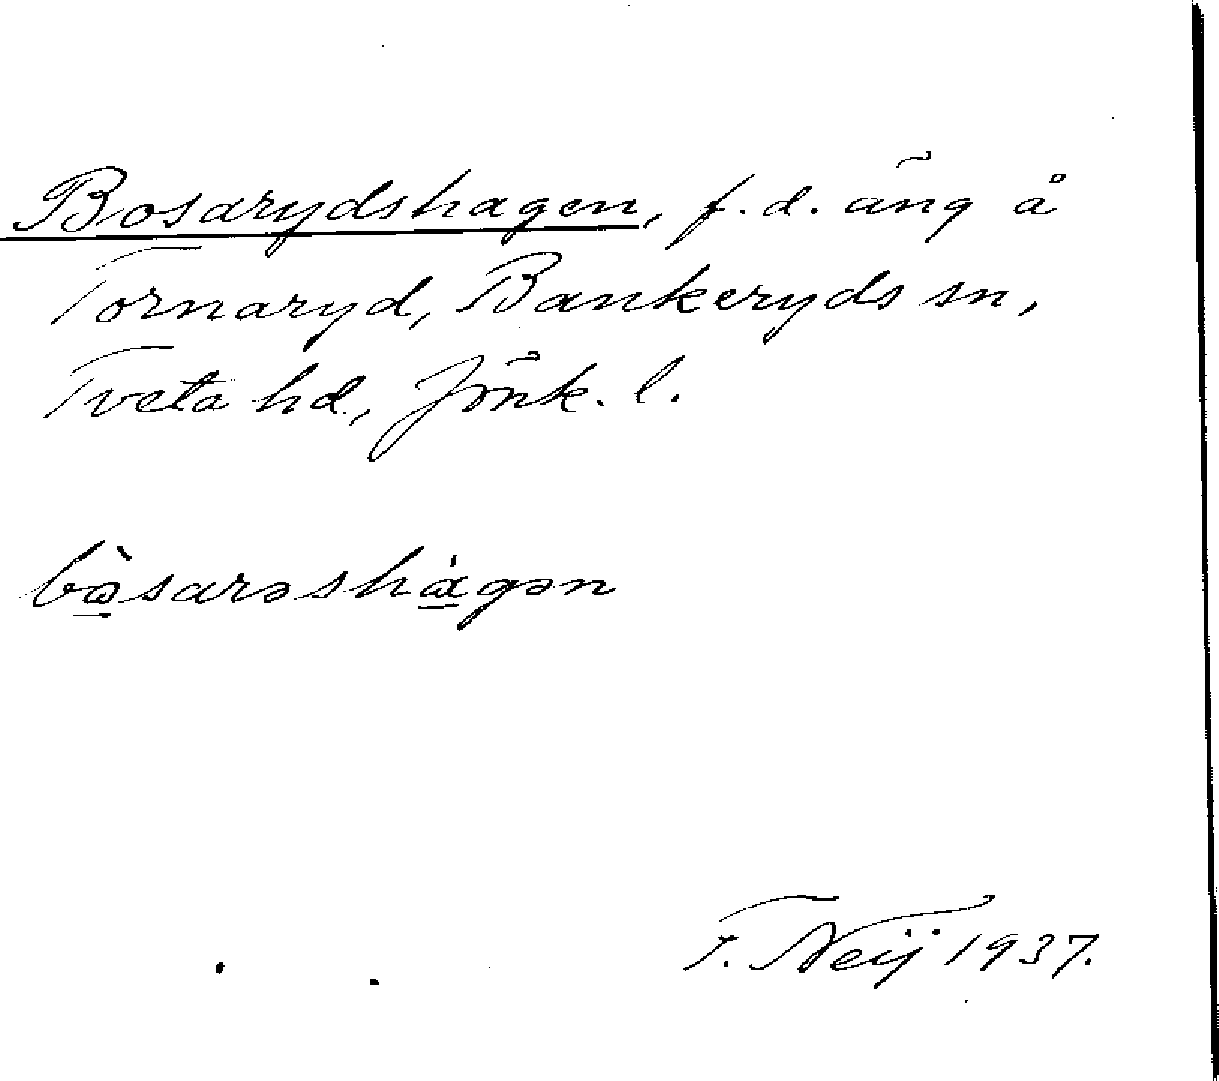 Bosarydshagen, f.d. äng å
Tornaryd, Bankeryds sn,
Tveta hd, Jönk. l.
bὼ̠sarəshά̠gən
F. Neij 1937.